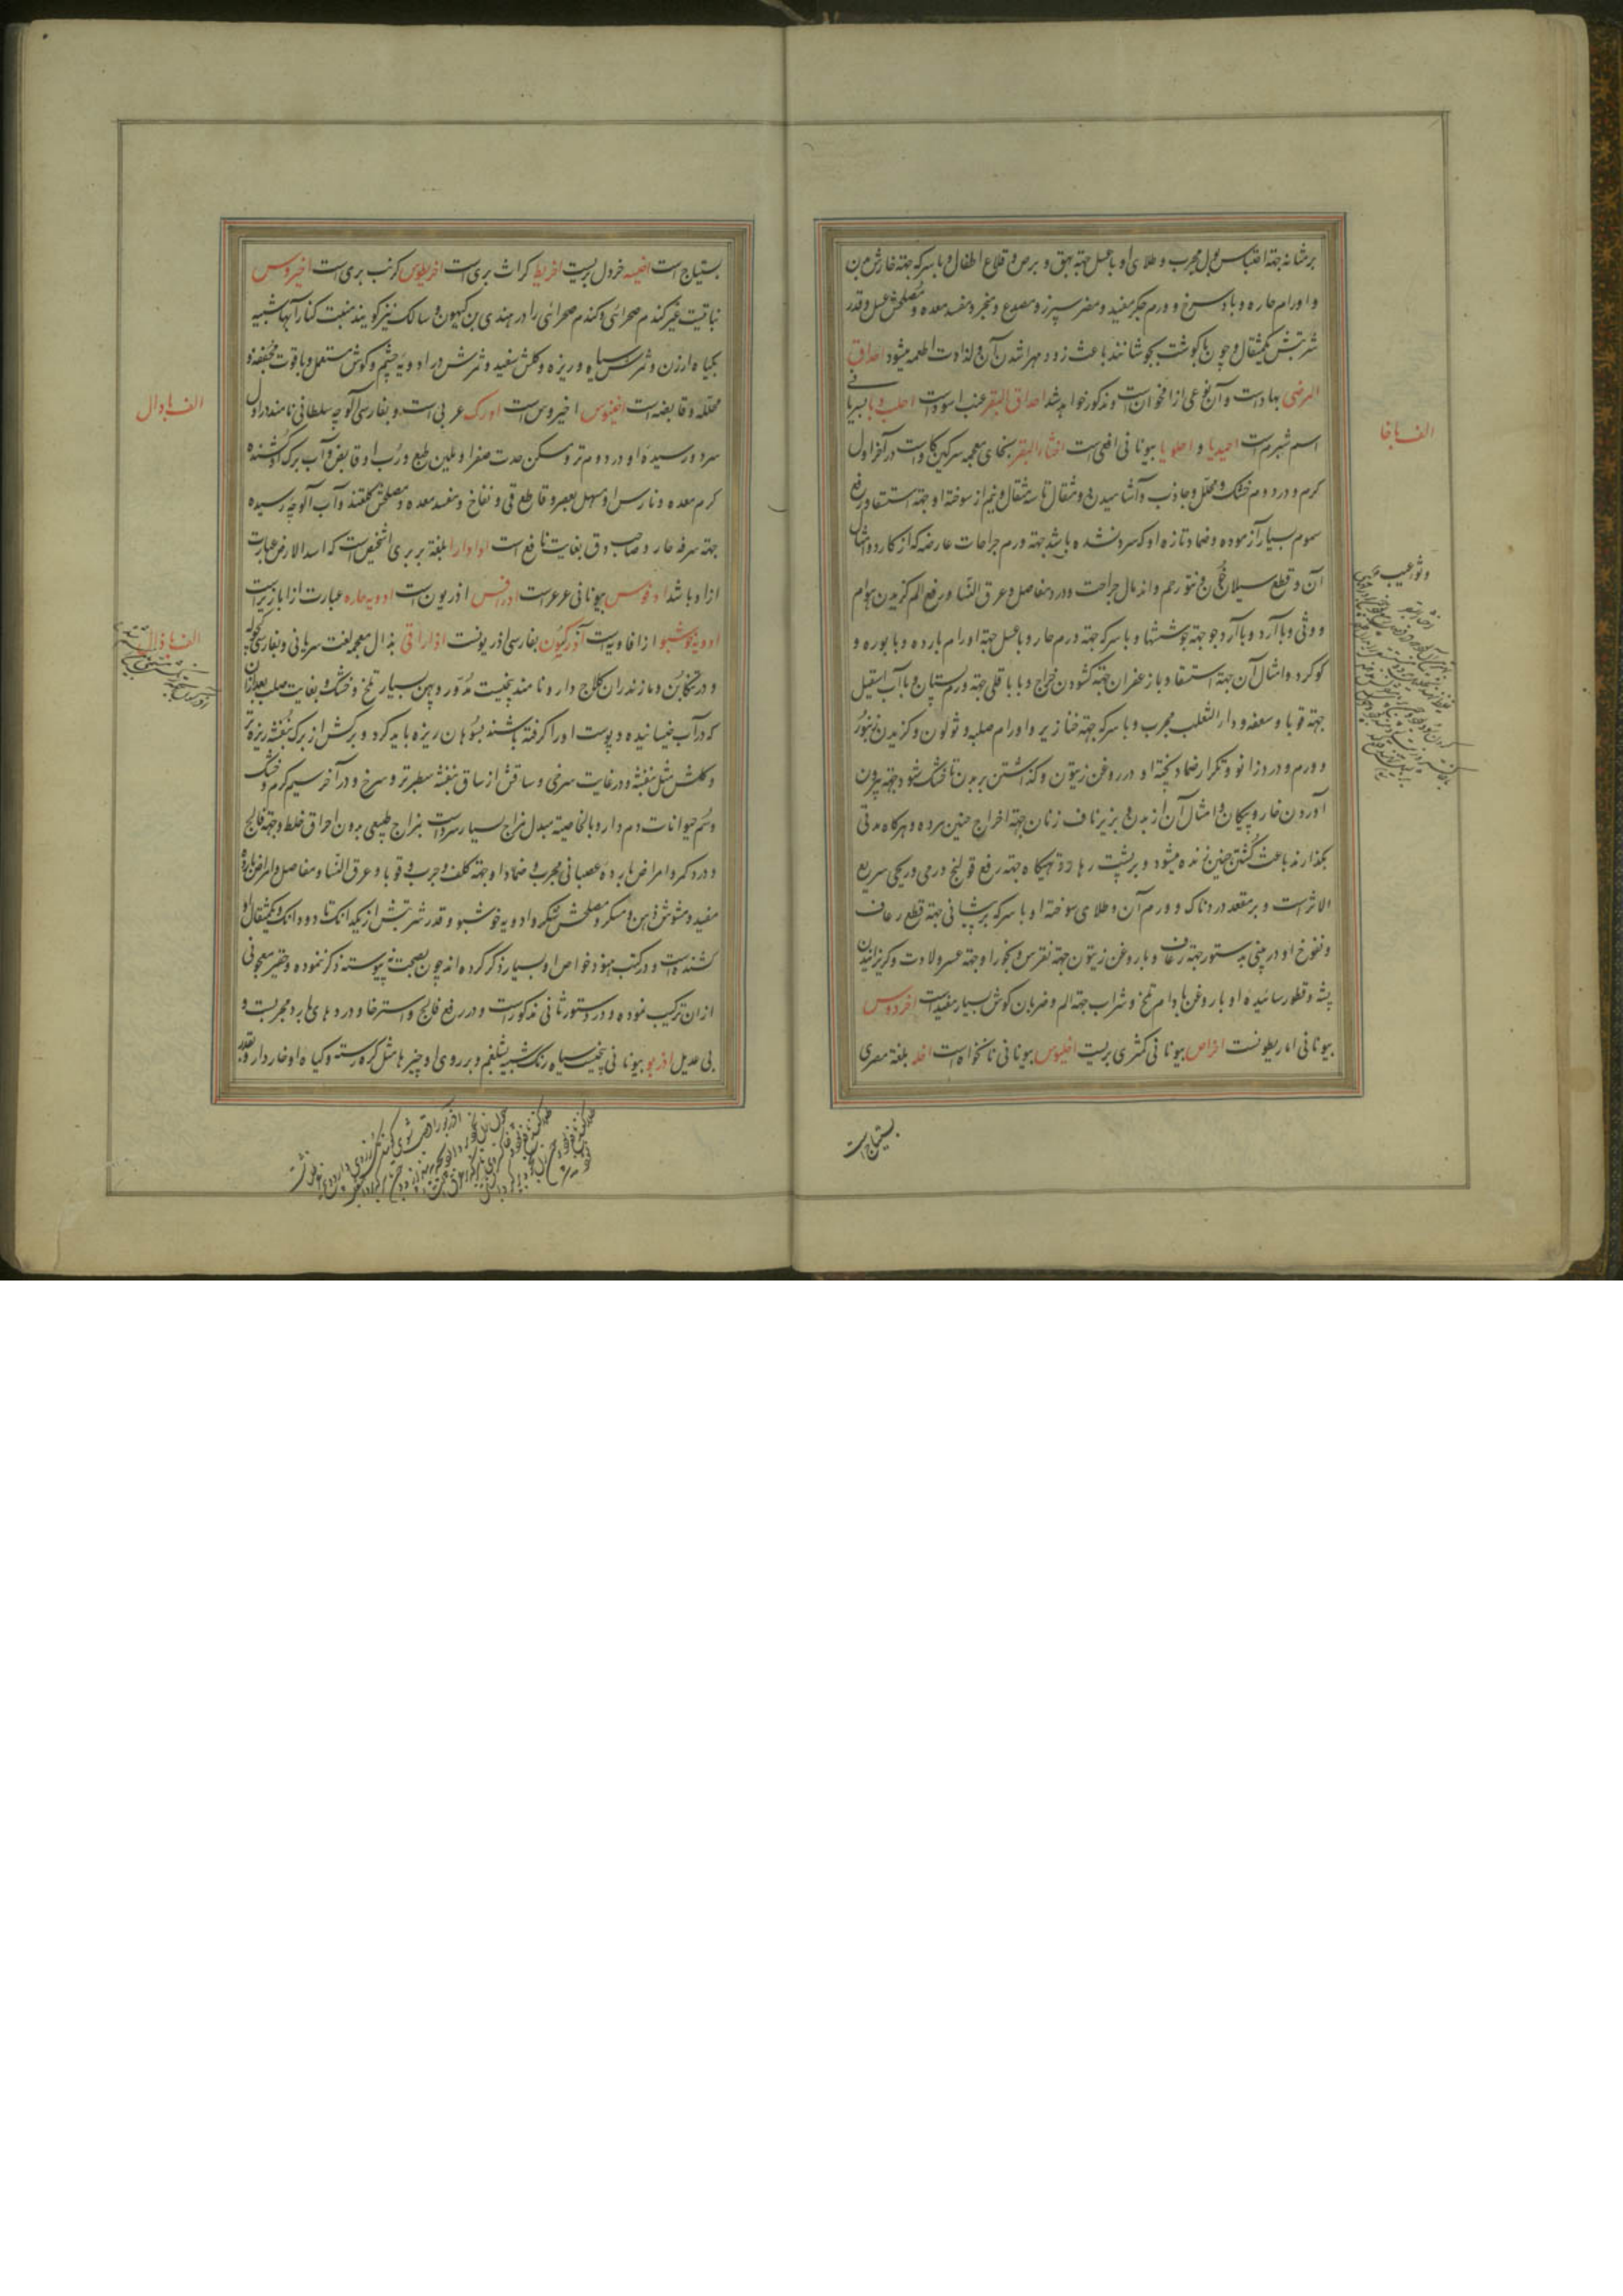 بر مثانه جهة احتباس بول مجرب و طلای او با عسل جهة بهق و برص و قلاع اطفال و با سرکه جهة خارش بدن
و اورام حاره و باد سرخ و ورم جگر مفید و مضر سپرز و مصدع و مبخر و مفسد معده و مصلحش عسل و قدر
شربتش یکمثقال و چون با گوشت بجوشانند باعث زود مهرا شدن آن و لذاذت اطعمه میشود احداق
المرضی بهار است و آن نوعی از اقحوان است و مذکور خواهد شد احداق البقر عنب اسود است احلب و با بسریانی
اسم شبرم است احیدیا و احلویا بیونانی افعی است اخثار البقر بخای معجمه سرکین کاو است در آخر اول
کرم و در دوم خشک و محلل و جاذب و آشامیدن دو مثقال تا سه مثقال و نیم از سوخته او جهة استسقا و رفع
سموم بسیار آزموده و ضماد تازه او که سرد نشده باشد جهة ورم جراحات عارضه که از کارد و امثال
آن و قطع سیلان خون و نتو رحم و اندمال جراحت و درد مفاصل و عرق النسا و رفع الم کزیدن هوام
و وثی و با آرد و با آرد جو جهة جوششها و با سرکه جهة ورم حار و با عسل جهة اورام بارده و با بوره و
کوکرد و امثال آن جهة استسقا و با زعفران جهة کشودن خراج و با باقلی جهة ورم پستان و با آب اسقیل
جهة قوبا و سعفه و داء الثعلب مجرب و با سرکه جهة خنازیر و اورام صلبه و ثولول و کزیدن زنبور
و ورم و درد زانو و تکرار ضماد پخته او در روغن زیتون و کذاشتن بر بدن تا خشک شود جهة بیرون
آوردن خار و پیکان و امثال آن از بدن و بر زیر ناف زنان جهة اخراج جنین مرده و هرکاه مدتی
بکذارند باعث کشتن جنین زنده میشود و بر پشت زهار و تهیکاه جهة رفع قولنج ورمی و ریحی سریع
الاثر است و بر مقعد دردناک و ورم آن و طلای سوخته او با سرکه بر پیشانی جهة قطع رعاف
و نفوخ او در بینی بدستور جهة رعاف و با روغن زیتون جهة نقرس و بخور او جهة عسر ولادت و کریزانیدن
پشه و قطور سائیده او با روغن بادام تلخ و شراب جهة الم و ضربان کوش بسیار مفید است اخردوس
بیونانی اماریطونست اخراص بیونانی کمثری بریست اخلیوس بیونانی نانخواه است اخله بلغة مصری
بستیاج است
الف با خا
بستیاج است اخیسه خردل بریست اخریط کراث بری است اخریطوس کرنب بری است اخیروس
نباتیست غیر کندم صحرائی و کندم صحرائی را در هندی بن کیهون و سالک نیز کویند منبت کنار آبها شبیه
بکیاه ارزن و ثمرش سیاه و ریزه و کلش سفید و ثمرش در ادویه چشم و کوش مستعمل و با قوت مجففه و
محلله و قابضه است اخینوس اخیروس است ادرک عربی است و بفارسی آلوچه سلطانی نامند در اول
سرد و رسیده او در دوم تر و مسکن حدت صفرا و ملین طبع و رب او قابض و آب برک او کشنده
کرم معده و نارس او مسهل بعصر و قاطع قی و نفاخ و مفسد معده و مصلحش کلقند و آب آلوچه رسیده
جهة سرفه حار و صاحب دق بغایت نافع است اداد ارا بلغة بربری اشخیص است که اسد الارض عبارت
از او باشد ادفوس بیونانی عرعر است ادرافس اذریون است ادویه حاره عبارت از ابازیر است
ادویه خوشبو از افاویه است آذرکیون بفارسی اذریونست اذاراقی بذال معجمه لغت سریانی و بفارسی کچوله
و در تنکابن و مازندران کلاج دارو نامند بیخیست مدور و پهن بسیار تلخ و خشک و بغایت صلب بعد از آن
که در آب خیسانیده و پوست او را کرفته باشند بسوهان ریزه باید کرد و برکش از برک بنفشه ریزه تر
و کلش مثل بنفشه و در غایت سرخی و ساقش از ساق بنفشه سطبرتر و سرخ و در آخر سیم کرم و خشک
و سم حیوانات دم دار و بالخاصیه مبدل مزاج بسیار سرد است بمزاج طبیعی بدون احراق خلط و جهة فالج
و درد کمر و امراض بارده عصبانی مجرب و ضماد او جهة کلف و جرب و قوبا و عرق النسا و مفاصل و امراض بارده
مفید و مشوش ذهن و مسکر و مصلحش شکر و ادویه خوشبو و قدر شربتش از یکدانک تا دو دانک و یکمثقال او
کشنده است و در کتب هنود خواص او بسیار ذکر کرده اند چون بصحت نه پیوسته ذکر ننموده و حقیر معجونی
از آن ترکیب نموده و در دستور ثانی مذکور است و در رفع فالج و استرخا و دردهای بارد مجربست و
بی عدیل اذربو بیونانی بیخیست سیاه رنک شبیه بشلغم و بر روی او چیزها مثل کره رسته و کیاه او خاردار و بقدر
الف با دال
الف با ذال